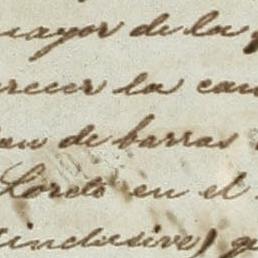 mayor de la
recer la can
an de barras
Loreto en el
inclusive)